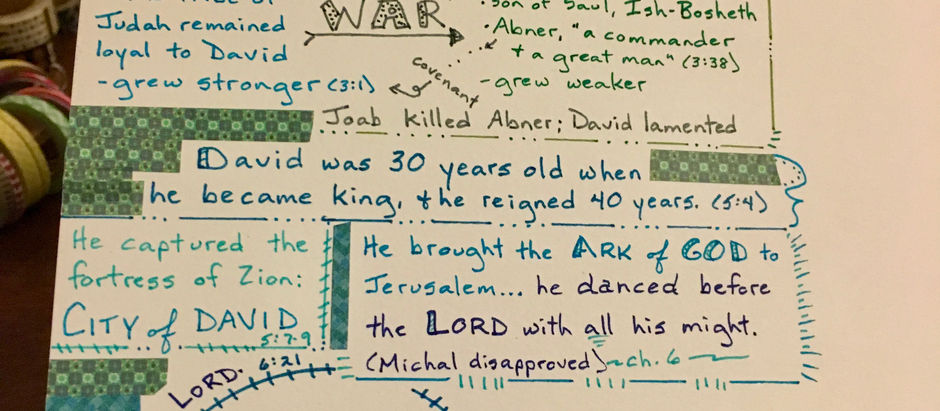 Judah remained
loyal to David
-grew stronger (3:1)
WAR
covenant
·son of Saul, Ish-Bosheth
·Abner, "a commander
& a great man" (3:38)
-grew weaker
Joab killed Abner; David lamented
David was 30 years old when
he became king, & he reigned 40 years. (5:4)
He captured the
fortress of Zion:
CITY of DAVID
5:7-9
He brought the ARK of GOD to
Jerusalem... he danced before
the LORD with all his might.
(Michal disapproved) ~ch. 6
LORD. 6:21